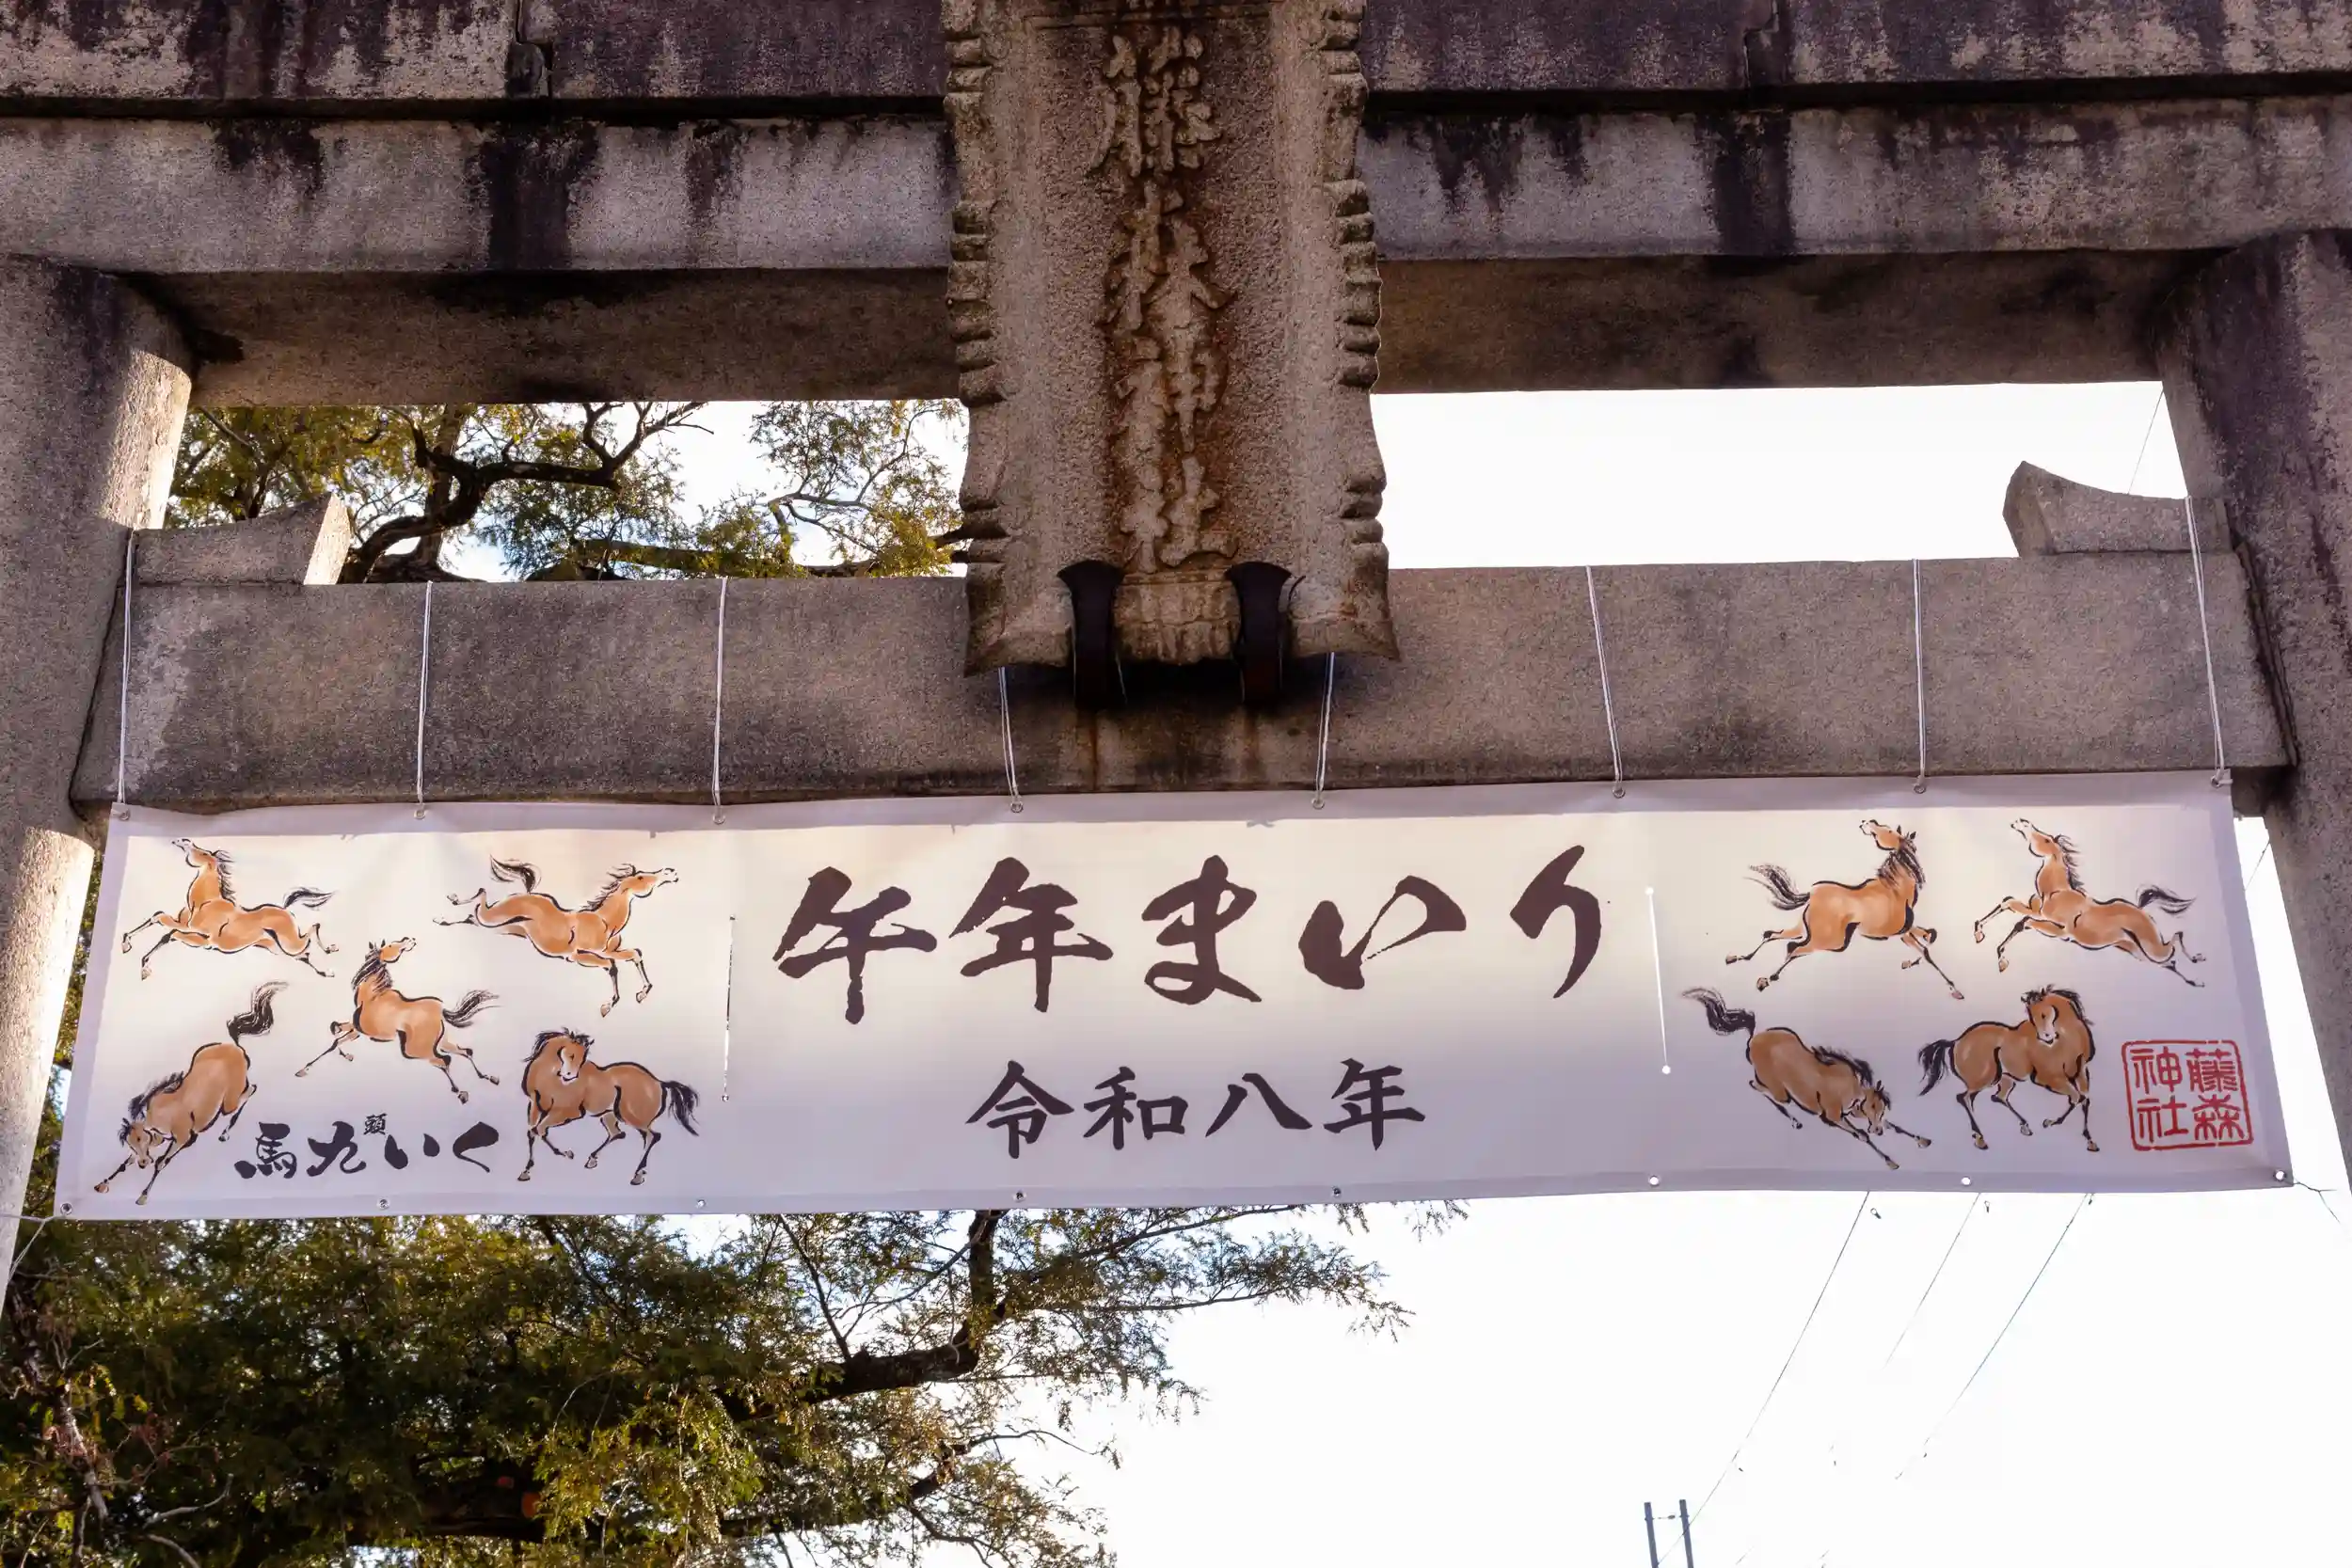 藤森神社
午年まいり
令和八年
馬九頭いく
藤森
神社